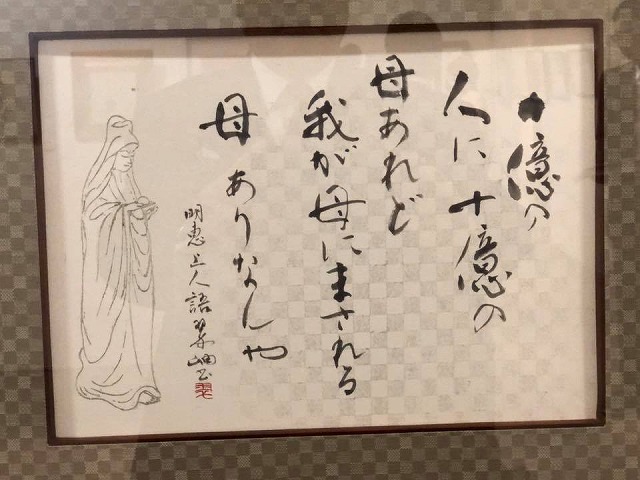 十億の
人に 十億の
母あれど
我が母にまされる
母ありなんや
明恵上人語 翠岫書